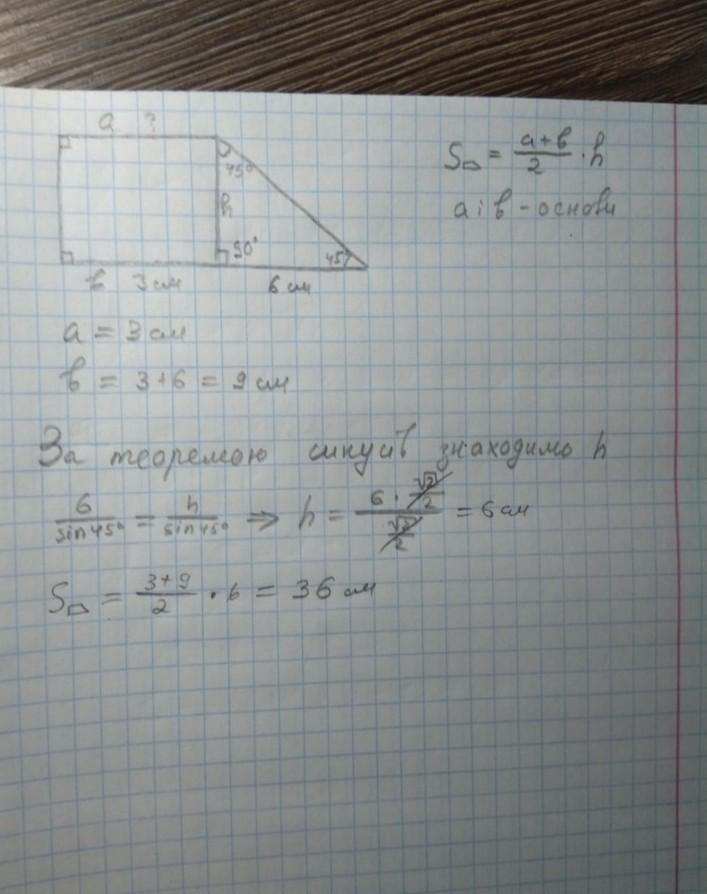 a ?
45°
h
90°
45°
в 3 см 6 см
S▱ = a+в/2 · h
a і в - основи
a = 3 см
в = 3+6 = 9 см
За теоремою синусів знаходимо h
6/sin45° = h/sin45° ⇒ h = (6 · √2/2)/(√2/2) = 6 см
S▱ = 3+9/2 · 6 = 36 см